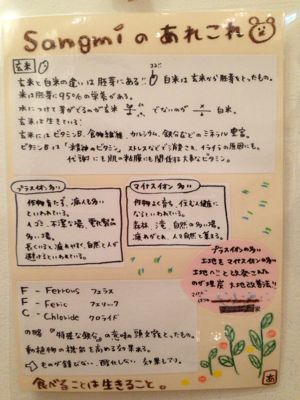 Sangmiのあれこれ
玄米
ココ!
玄米と白米の違いは胚芽にある!! 白米は玄米から胚芽をとったもの。
米は胚芽に95%の栄養がある。
水につけて芽がでるのが玄米 でないのが 白米。
玄米は生きている!
玄米にはビタミンB、食物繊維、カルシウム、鉄分などのミネラル豊富。
ビタミンBは「精神のビタミン」、ストレスなどで消費され、イライラの原因にも。
代謝にも肌の粘膜にも関係する大事なビタミン。
プラスイオン多い
作物育たず、痩人も多い
といわれている。
人ゴミ、不潔な場、電化製品
多い場。
長くいると疲れやすく、自然と人が
避けるといわれている。
マイナスイオン多い
作物よく育ち、住む人健康に
なるといわれている。
森林、滝、自然の多い場。
疲れがとれ、人々自然と集まる。
プラスイオンの多い
土地をマイナスイオンの多い
土地へと改変された
のが埋炭 大地改善法!!
F - Ferrous フェラス
F - Feric フェリック
C - Chloride クロライド
の略 "特殊な鉄分"の意味の頭文字をとったもの。
動植物の機能を高める効果あり。
ものが錆びない、酸化しない 効果もアリ。
食べることは生きること。
あ